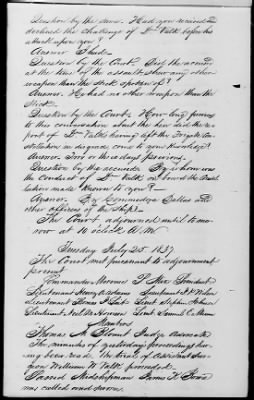 Question by the same. Had you received or
declined the challenge of Dr Valk before his
attack upon you?
Answer I had.
Question by the Court. Did the accused
at the time of the assault show any other
weapon than the stick spoken of?
Answer. He had no other weapon than the
stick.
Question by the Court. How long previous
to this communication about the Lieu did the re-
port of Dr Valk's having left the Frigate Con-
stellation in disgrace come to your knowledge?
Answer. Two or three days previous.
Question by the accused. By whom was
the conduct of Dr Valk on board the Constel-
lation made known to you?
Answer. By Commodore Dallas and
other officers of the Ship.
The Court adjourned until tomor-
row at 10 o'clock A.M.
Tuesday July 25 1837.
The Court met pursuant to adjournment
present
Commander
Lieutenant Henry Lieutenant
Lieutenant Lieut. Stephen Johnson
Lieutenant Lieut. Samuel
Members
Thomas M. Blount Judge Advocate
The minutes of yesterdays proceedings hav-
ing been read. The trial of Assistant Sur-
geon William W. Valk proceeded.
Passed Midshipman James K. Bowie
was called and sworn.